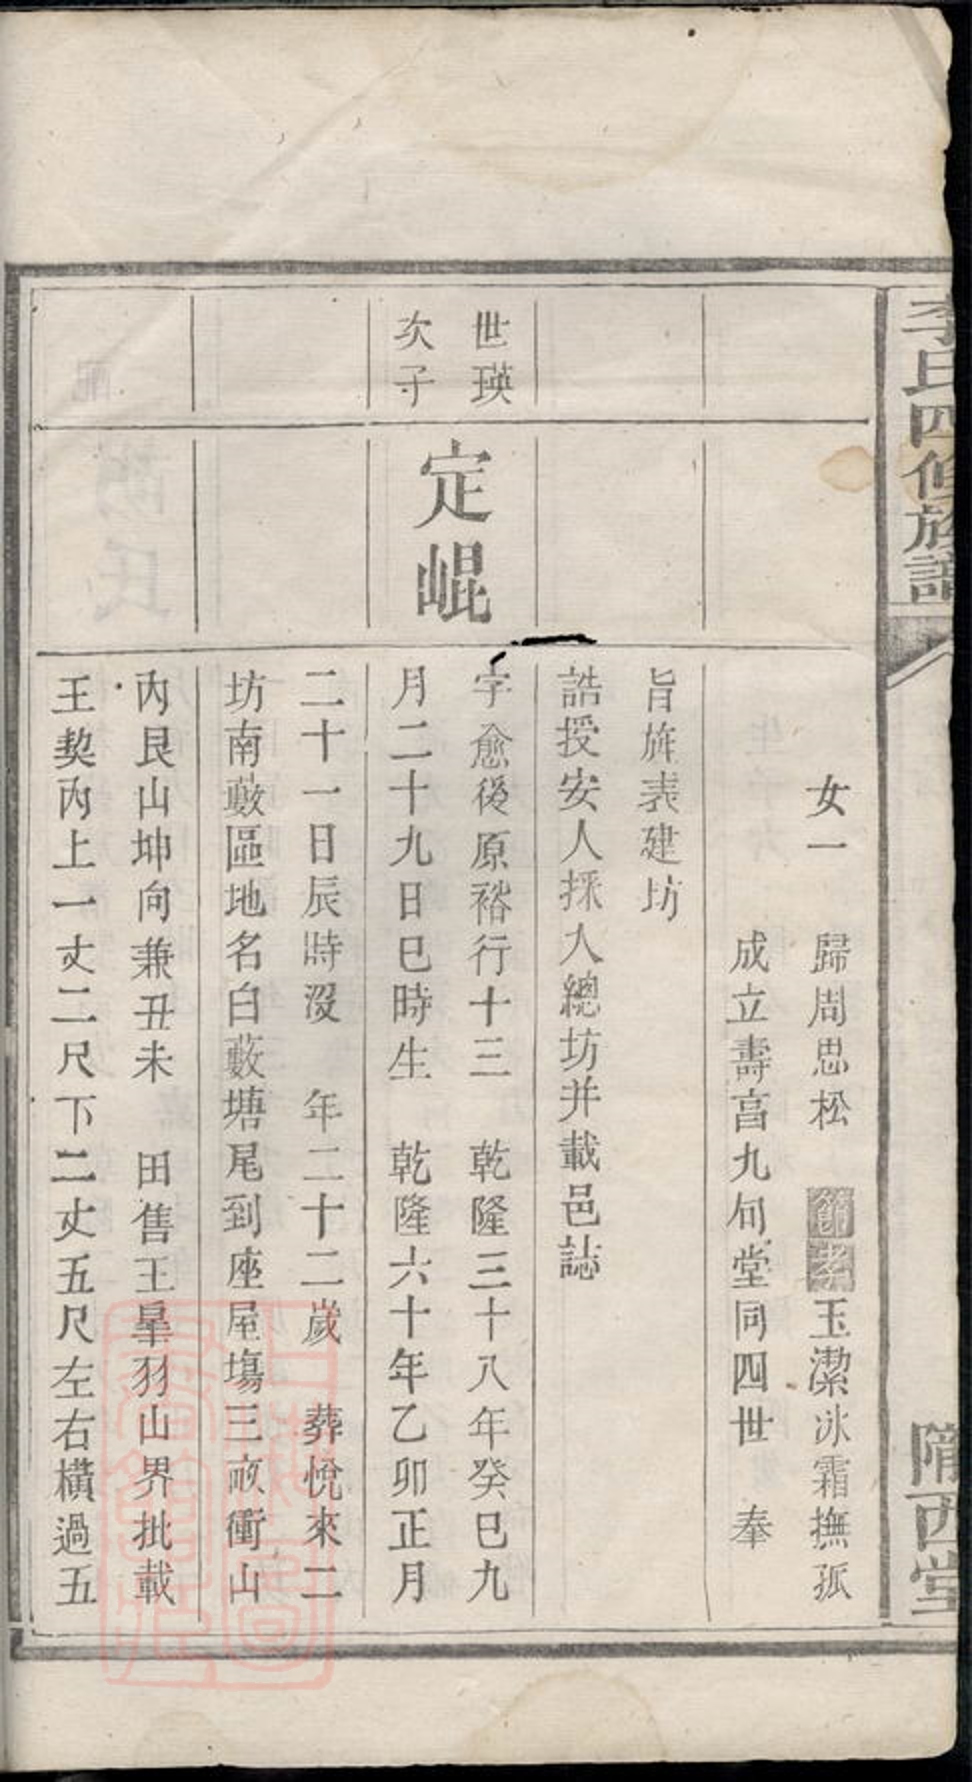 李氏四修族譜
隴西堂
女一 歸周思松 節孝玉潔冰霜撫孤
成立壽亯九旬堂同四世 奉
旨旌表建坊
誥授安人採入總坊并載邑誌
世瑛
次子
定崐
字愈後原裕行十三 乾隆三十八年癸巳九
月二十九日巳時生 乾隆六十年乙卯正月
二十一日辰時沒 年二十二歲 葬悅來二
坊南藪區地名白藪塘尾到座屋塲三畝衝山
內艮山坤向兼丑未 田售王羽山界批載
王契內上一丈二尺下二丈五尺左右橫過五